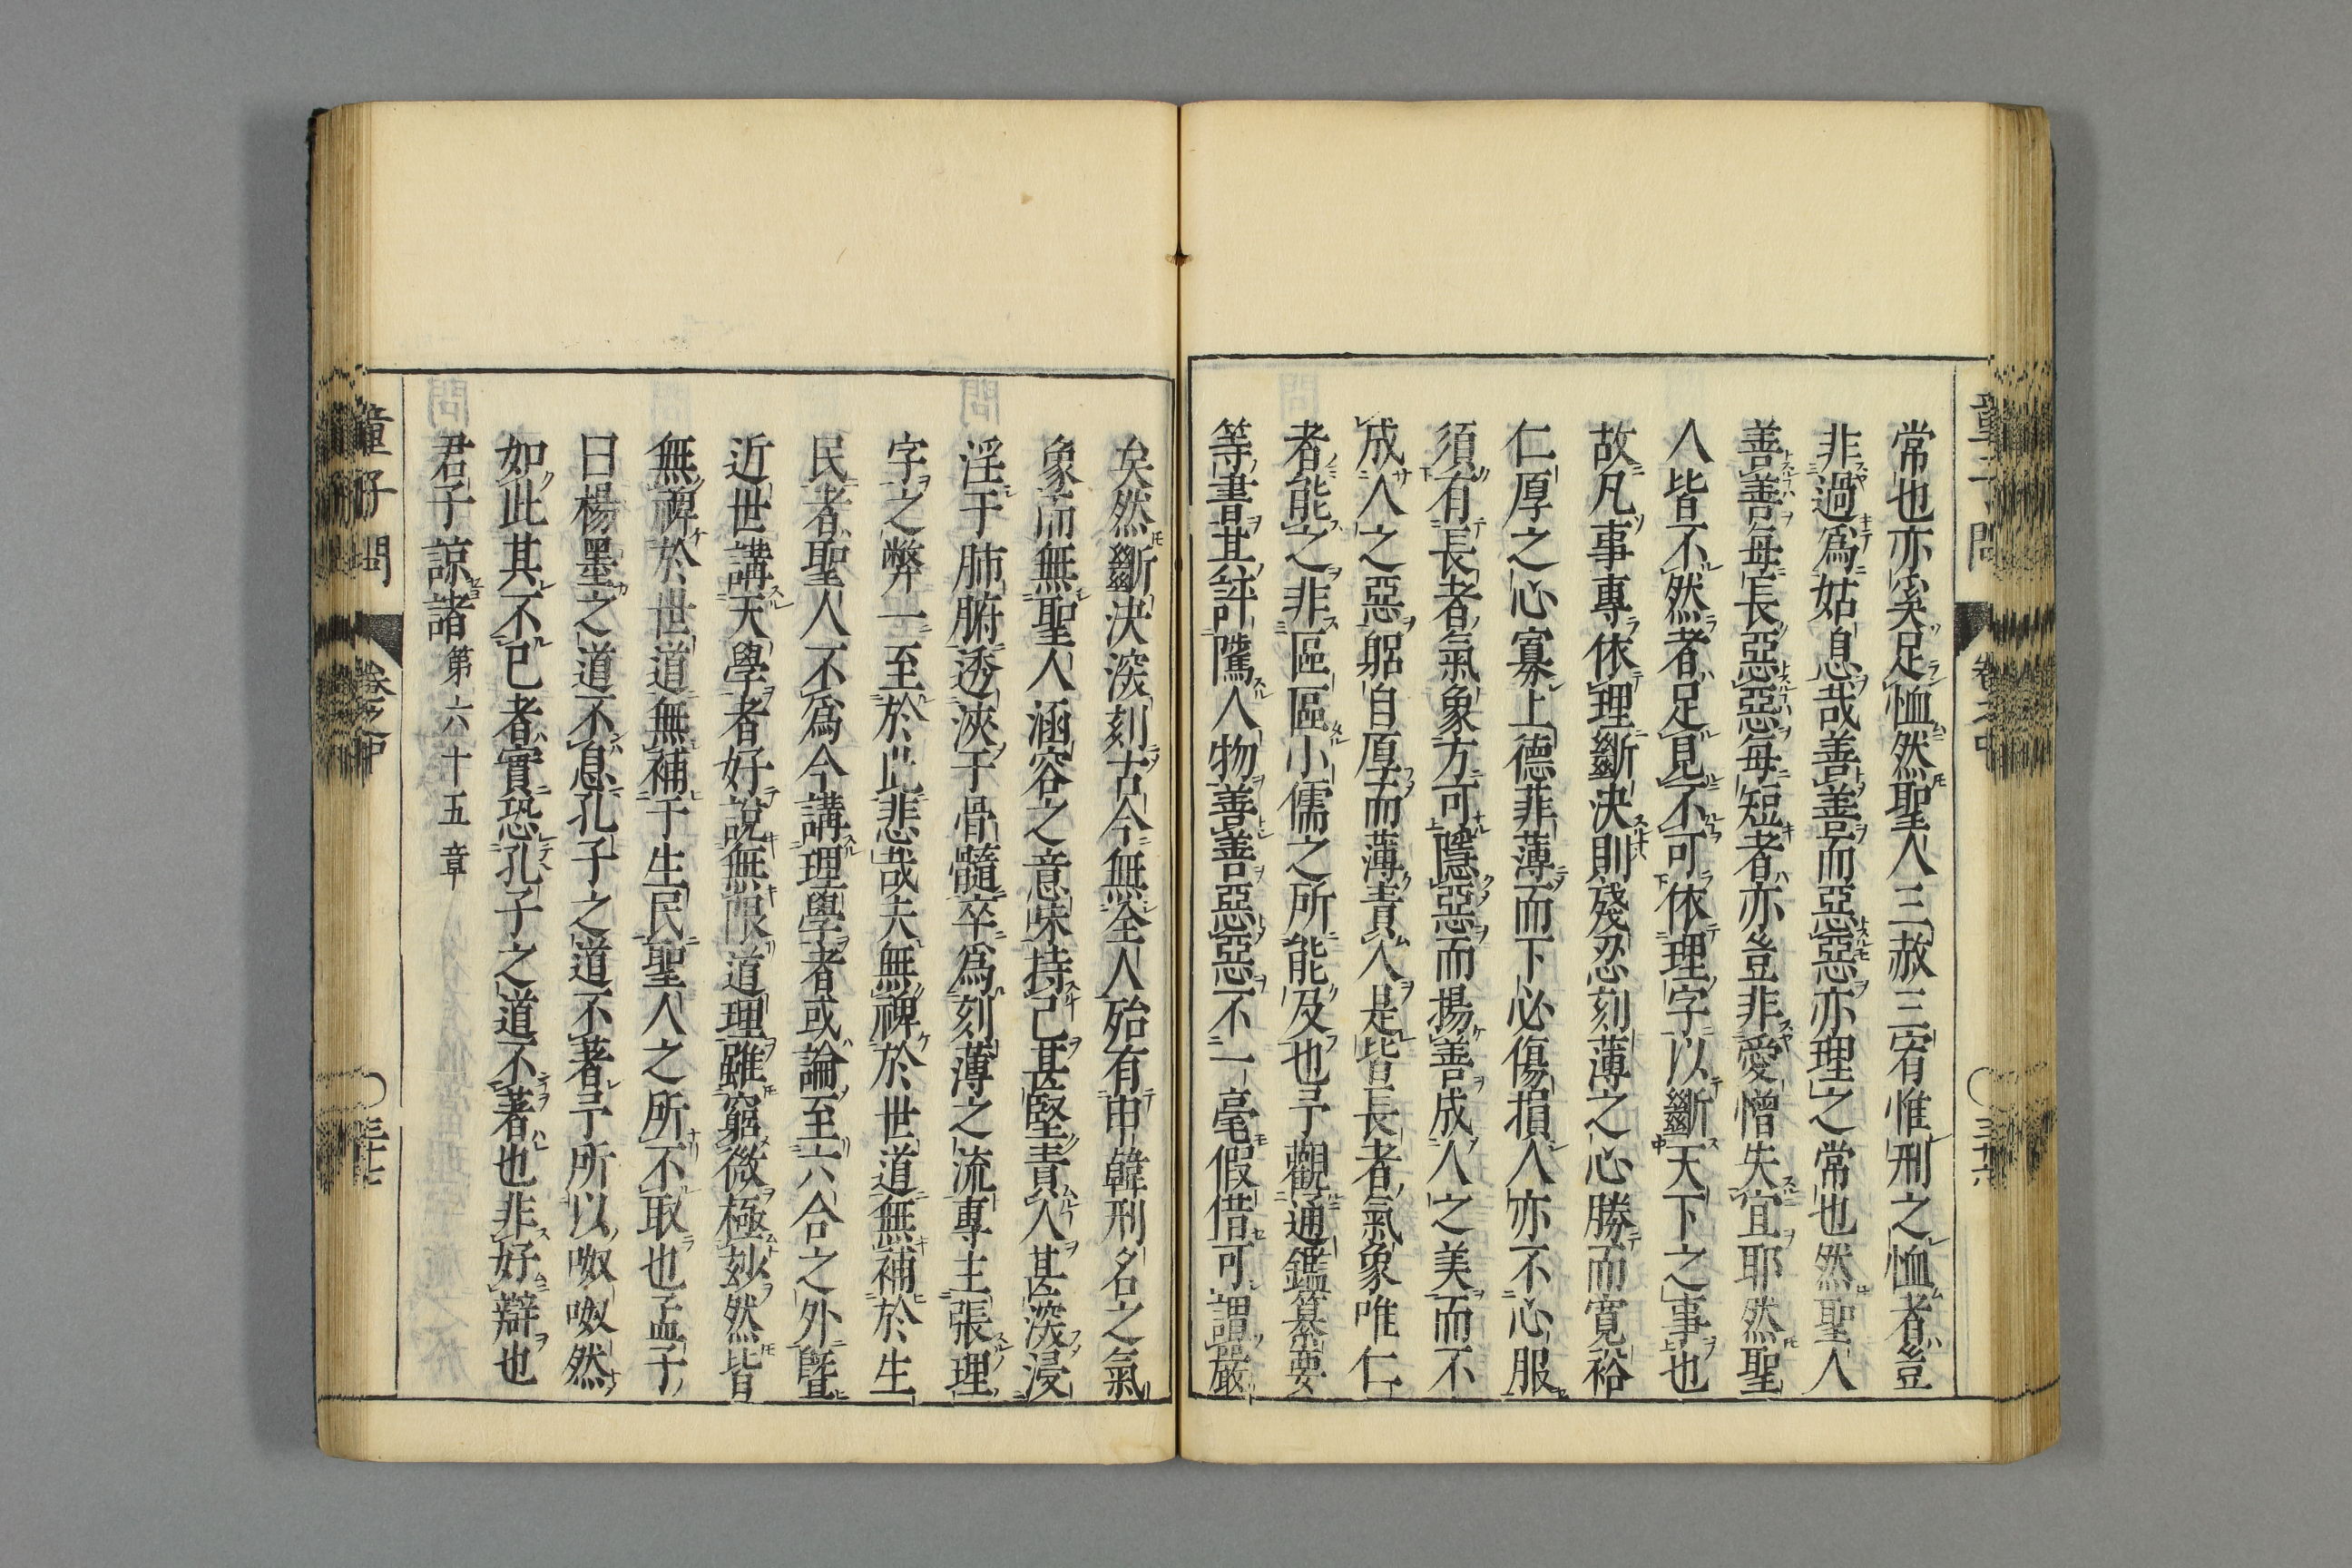 童子問
卷之中
三十六
常也亦奚足恤然聖人三赦三宥惟刑之恤者豈
非過爲姑息哉善善而惡惡亦理之常也然聖人
善善每長惡惡每短者亦豈非愛憎失宜耶然聖
人皆不然者足見不可依理字以斷天下之事也
故凡事專依理斷決則殘忍刻薄之心勝而寛裕
仁厚之心寡上德菲薄而下必傷損人亦不心服
須有長者氣象方可隱惡而揚善成人之美而不
成人之惡躬自厚而薄責人是皆長者氣象唯仁
者能之非區區小儒之所能及也予觀通鑑纂要
等書其評隲人物善善惡惡不一毫假借可謂嚴
矣然斷決深刻古今無全人殆有申韓刑名之氣
象而無聖人涵容之意味持己甚堅責人甚深浸
淫于肺腑透浹于骨髓卒爲刻薄之流專主張理
字之弊一至於此悲哉夫無裨於世道無補於生
民者聖人不爲今講理學者或論至六合之外曁
近世講天學者好說無限道理雖窮微極玅然皆
無裨於世道無補于生民聖人之所不取也孟子
曰楊墨之道不息孔子之道不著予所以呶呶然
如此其不已者實恐孔子之道不著也非好辯也
君子諒諸 第六十五章
童子問
卷之中
三十七